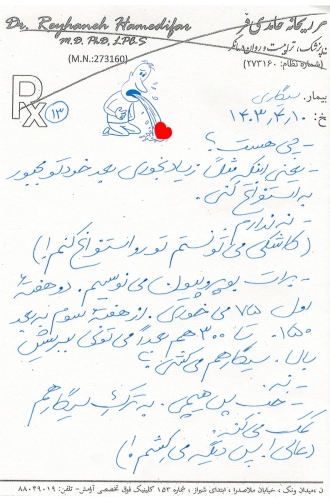 Dr. Reyhaneh Hamedifar
M.D. PhD, LPG.S
(M.N.:273160)
دکتر ریحانه حامدی فر
(شماره نظام: ۲۷۳۱۶۰)
Rx
۱۳
بیمار: سیگاری
۱۴۰۳,۴,۱۰
- چی هست؟
- یعنی اینکه مثلاً زیاد بخوری بعد خودتو مجبور
به استفراغ کنی.
- نه ندارم.
(کاشکی می تونستم تو رو استفراغ کنم!)
- برات بوپروپیون می نویسم. دو هفتهٔ
اول ۷۵ می خوری. از هفتهٔ سوم به بعد
۱۵۰. تا ۳۰۰ هم بعداً می تونی ببریش
بالا. سیگار هم می کشی؟
- نه.
- خب پس هیچی. به ترک سیگار هم
کمک می کنه.
(عالی! پس دیگه می کشم!)
میدان ونک، خیابان ملاصدرا، ابتدای شیراز، شماره ۱۵۳ کلینیک فوق تخصصی آرامش - تلفن: ۸۸۰۳۹۰۱۹